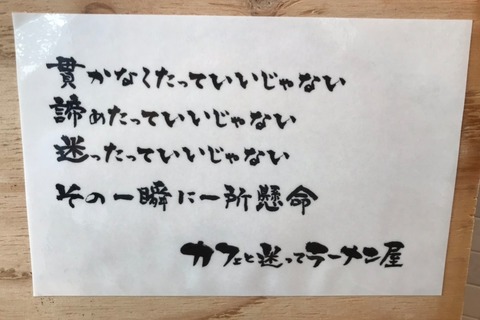 貫かなくたっていいじゃない
諦めたっていいじゃない
迷ったっていいじゃない
その一瞬に一所懸命
カフェと迷ってラーメン屋